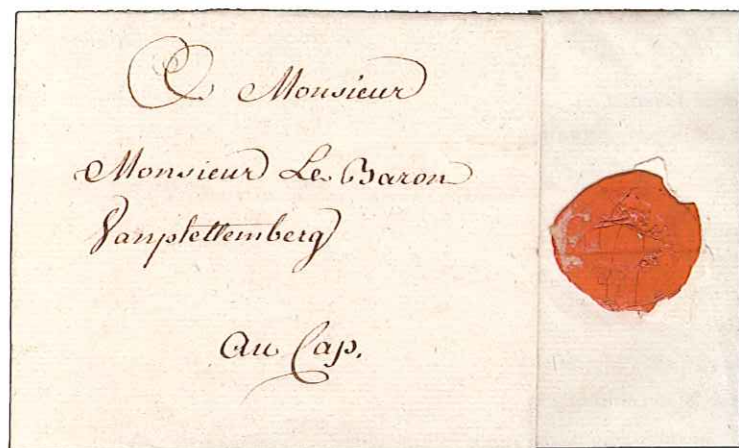 A Monsieur
Monsieur Le Baron
Vanplettemberg
Au Cap.